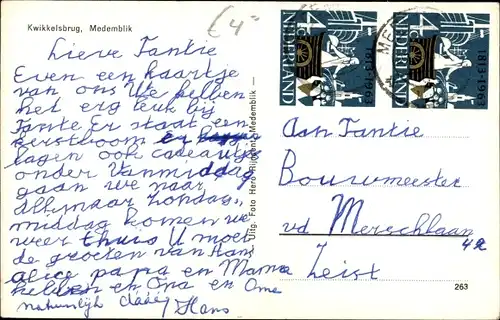 Kwikkelsbrug, Medemblik
€4=
Lieve Tantie
Even een kaartje
van ons We hebben
het erg leuk bij
Tante Er staat een
kerstboom er
lagen ook cadeautjes
onder Vanmiddag
gaan we naar
Alkmaar Zondag
middag komen we
weer thuis U moet
de groeten van Hans
alice papa en Mama
hebben en Opa en Ome
natuurlijk dááág Hans
Uitg. Foto Hero Medemblik
4 NEDERLAND 1813-1963
4 NEDERLAND 1813-1963
ME
Aan Tantie
Bouwmeester
vd Merschlaan
42
Zeist
263